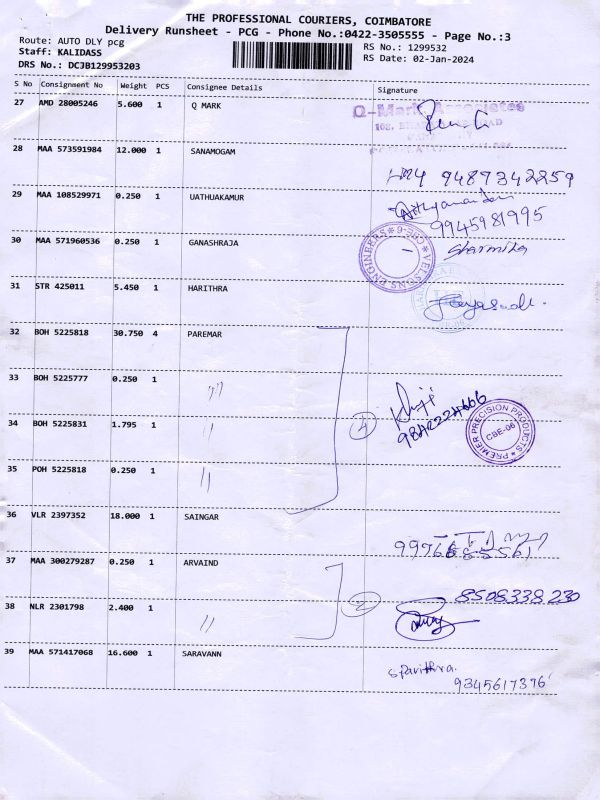 THE PROFESSIONAL COURIERS, COIMBATORE
Delivery Runsheet - PCG - Phone No.:0422-3505555 - Page No.:3
Route: AUTO DLY pcg
RS No.: 1299532
Staff: KALIDASS
RS Date: 02-Jan-2024
DRS No.: DCJB129953203
S No Consignment No Weight PCS Consignee Details Signature
27 AMD 28005246 5.600 1 Q MARK
Q-Mark Associates
28 MAA 573591984 12.000 1 SANAMOGAM
9487342259
29 MAA 108529971 0.250 1 UATHUAKAMUR
9945981995
30 MAA 571960536 0.250 1 GANASHRAJA
VELSONS ENGINEERS
Sharmila
31 STR 425011 5.450 1 HARITHRA
32 BOH 5225818 30.750 4 PAREMAR
33 BOH 5225777 0.250 1 "
34 BOH 5225831 1.795 1 "
4
PREMIER PRECISION PRODUCTS
CBE-06
35 POH 5225818 0.250 1 "
36 VLR 2397352 18.000 1 SAINGAR
37 MAA 300279287 0.250 1 ARVAIND
8508338230
38 NLR 2301798 2.400 1 "
2
39 MAA 571417068 16.600 1 SARAVANN
S Pavithra.
9345617376